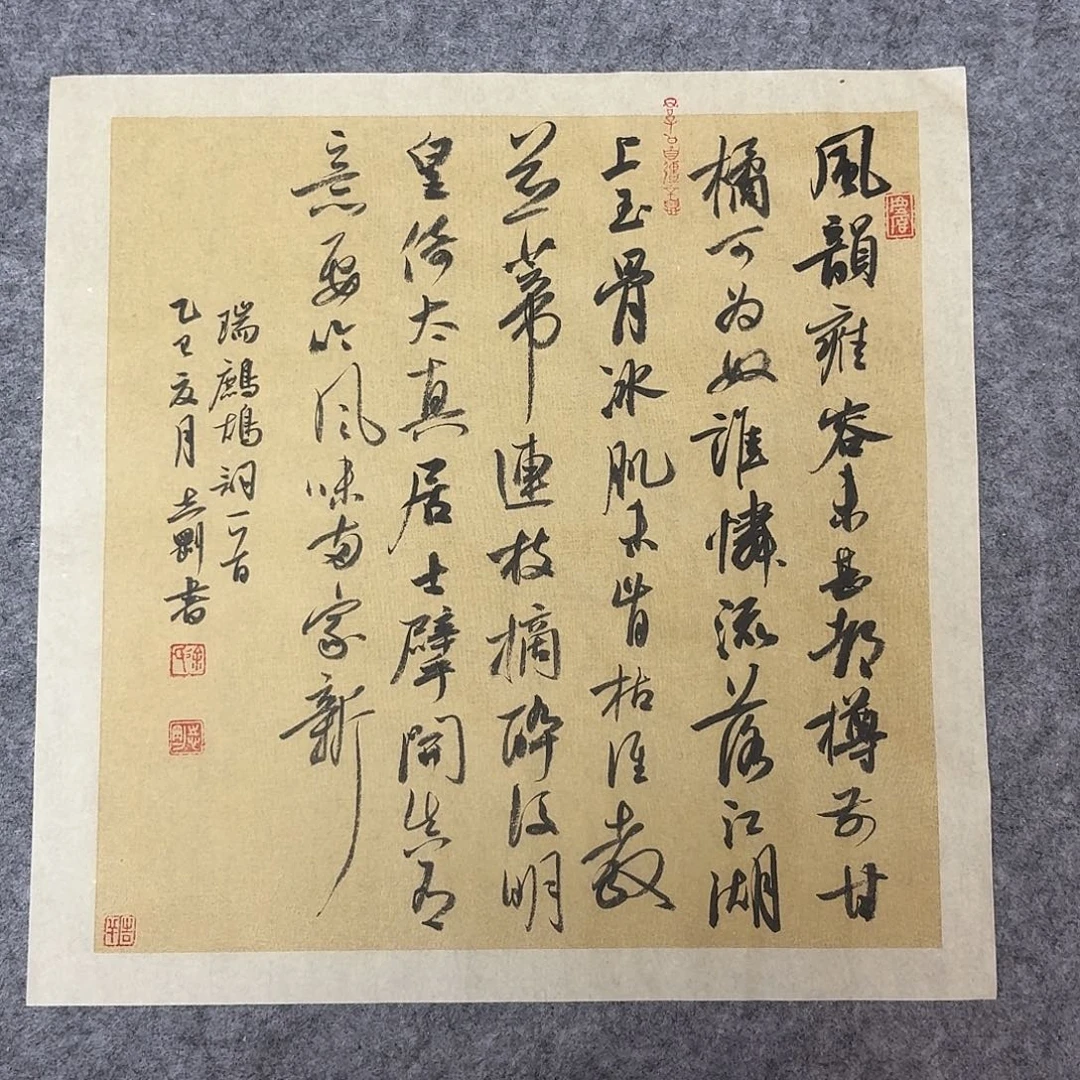 風韻雍容未甚都樽前甘
橘可为奴誰憐流落江湖
上玉骨冰肌未肯枯谁教
並蒂連枝摘醉後明
皇倚太真居士擘開真有
意要吟风味两家新
瑞鷓鴣詞一首
乙巳夏月志剛書
徐氏